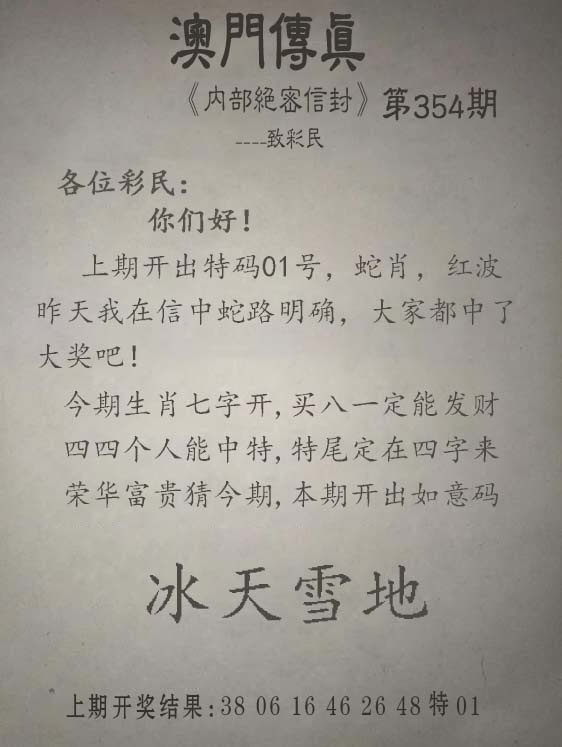 澳門傳真
《内部絕密信封》第354期
----致彩民
各位彩民：
你们好！
上期开出特码01号，蛇肖，红波
昨天我在信中蛇路明确，大家都中了
大奖吧！
今期生肖七字开,买八一定能发财
四四个人能中特,特尾定在四字来
荣华富贵猜今期,本期开出如意码
冰天雪地
上期开奖结果:38 06 16 46 26 48 特 01